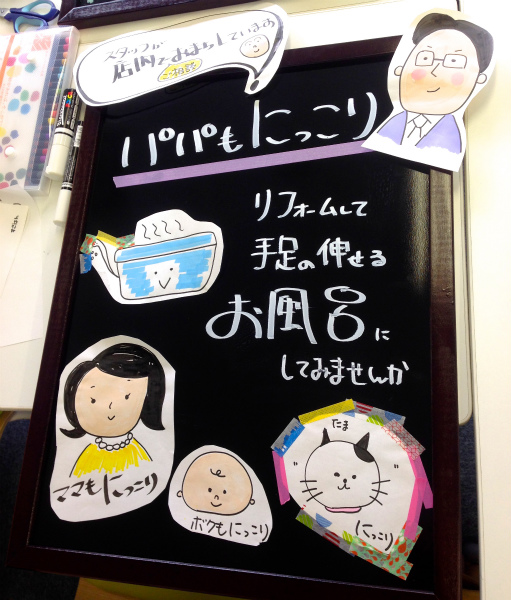 スタッフが
店内でおまちしています
ご相談
パパもにっこり
リフォームして
手足の伸せる
お風呂に
してみませんか
ママもにっこり
ボクもにっこり
たま
"   "
にっこり